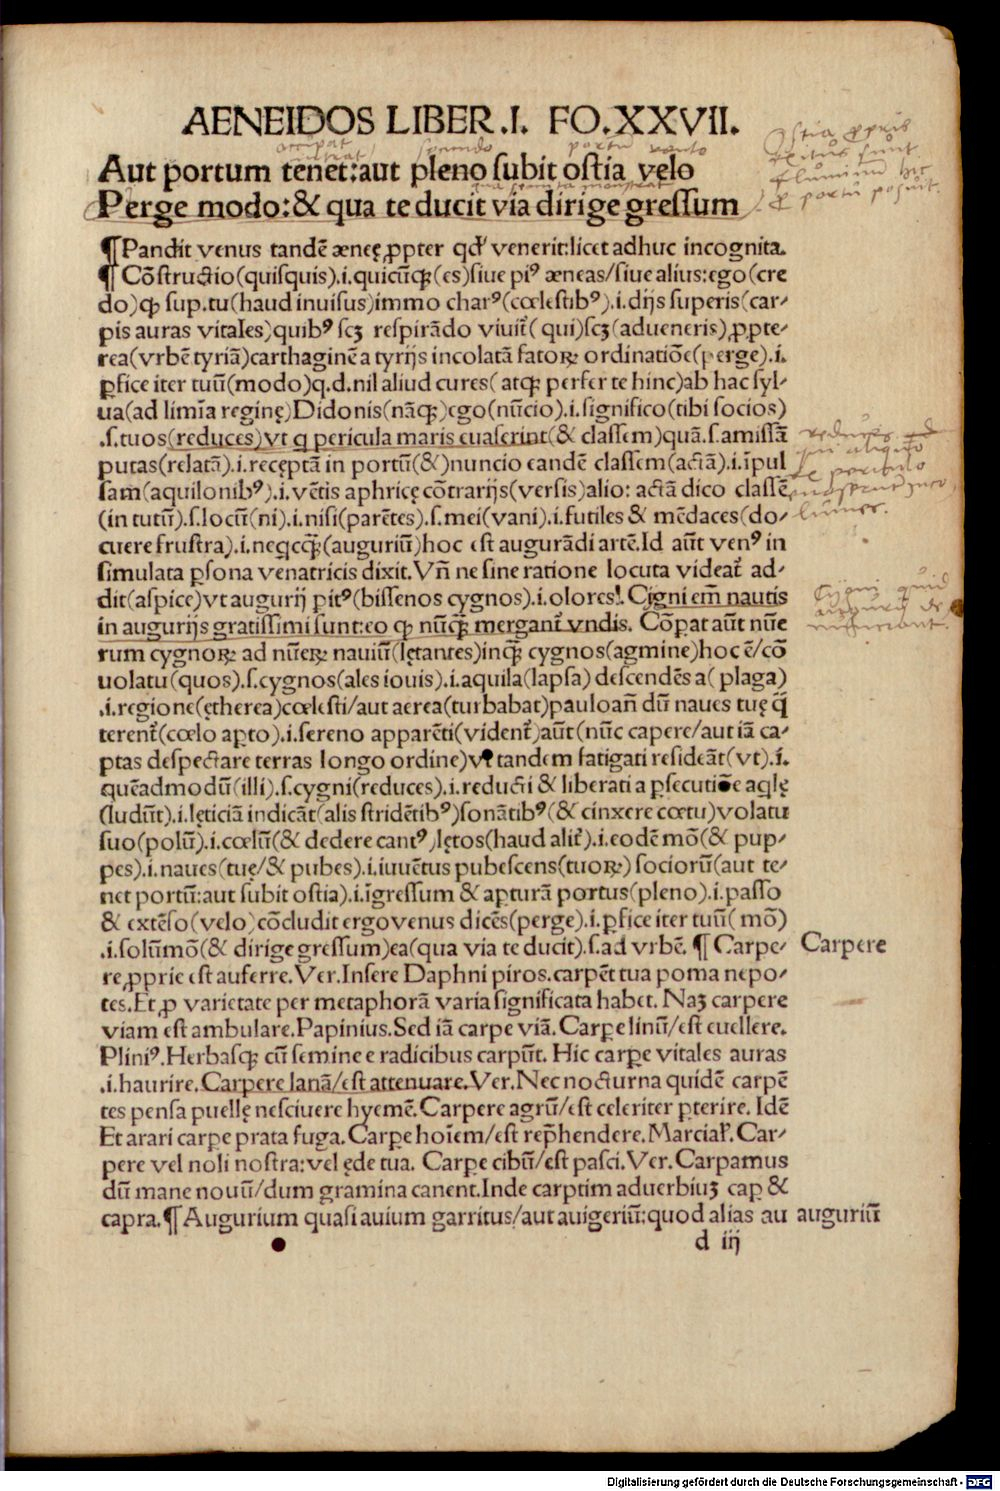 AENEIDOS LIBER.I. FO.XXVII.
Aut portum tenet:aut pleno subit ostia velo
Perge modo:& qua te ducit via dirige gressum
¶Pandit venus tandē æneę ꝓpter qđ venerit:licet adhuc incognita.
¶ Cōstructio(quisquis).i.quicūqꝫ(es)siue piꝰ æneas/siue alius:ego(cre
do)ꝙ sup.tu(haud inuisus)immo charꝰ(cœlestibꝰ).i.dijs superis(car⸗
pis auras vitales)quibꝰ scꝫ respirādo viuit᷑(qui)scꝫ(adueneris)ꝓpte⸗
rea(vrbē tyriā)carthaginē a tyrijs incolatā fatoꝝ ordinatiōe(perge).i.
ꝑfice iter tuū(modo)q.d.nil aliud cures(atqꝫ perfer te hinc)ab hac syl⸗
ua(ad limīa reginę)Didonis(nāqꝫ)ego(nūcio).i.significo(tibi socios)
.s.tuos(reduces)vt q pericula maris euaserint(& classem)quā.s.amissā
putas(relatā).i.recęptā in portū(&)nuncio eandē classem(actā).i.īpul
sam(aquilonibꝰ).i.vētis aphricę cōtrarijs(versis)alio: actā dico classē
(in tutū).s.locū(ni).i.nisi(parētes).s.mei(vani).i.futiles & mēdaces(do⸗
cuere frustra).i.neqcqꝫ̄(auguriū)hoc est augurādi artē.Id aūt venꝰ in
simulata ꝑsona venatricis dixit.Vn̄ ne sine ratione locuta videat᷑ ad⸗
dit(aspice)vt augurij ꝑitꝰ(bissenos cygnos).i.olores!. Cigni em̄ nautis
in augurijs gratissimi sunt:eo ꝙ nūqꝫ̄ mergant᷑ vndis. Cōꝑat aūt nūe
rum cygnoꝝ ad nūeꝝ nauiū(lętantes)inqꝫ̄ cygnos(agmine)hoc ē/cō
uolatu(quos).s.cygnos(ales iouis).i.aquila(lapsa) descendēs a(plaga)
.i.regione(ętherea)cœlesti/aut aerea(turbabat)pauloan̄ dū naues tuę q̄
terent᷑(cœlo aꝑto).i.sereno apparēti(vident᷑)aūt(nūc capere/aut iā ca⸗
ptas despectare terras longo ordine)vt tandem fatigati resideāt(vt).i.
quēadmodū(illi).s.cygni(reduces).i.reducti & liberati a ꝑsecutiōe aqlę
(ludūt).i.lęticiā indicāt(alis stridētibꝰ)sonātibꝰ(& cinxere cœtu)volatu
suo(polū).i.cœlū(& dedere cantꝰ)lętos(haud alit᷑).i.eodē mō(& pup⸗
pes).i.naues(tuę/& pubes).i.iuuētus pubescens(tuoꝝ)sociorū(aut te⸗
net portū:aut subit ostia).i.īgressum & aꝑturā portus(pleno).i.passo
& extēso(velo)cōcludit ergo venus dicēs(perge).i.ꝑfice iter tuū(mō)
.i.solūmō(& dirige gressum)ea(qua via te ducit).s.ad vrbē. ¶ Carpe⸗
Carpere
re ꝓprie est auferre.Ver.Insere Daphni piros.carpēt tua poma nepo⸗
tes.Et ꝓ varietate per metaphorā varia significata habet. Naꝫ carpere
viam est ambulare.Papinius.Sed iā carpe viā.Carꝑe linū/est euellere.
Pliniꝰ.Herbasqꝫ cū semine e radicibus carpūt. Hic carꝑe vitales auras
.i.haurire.Carpere lanā/est attenuare.Ver.Nec nocturna quidē carpē
tes pensa puellę nesciuere hyemē.Carpere agrū/est celeriter ꝑterire. Idē
Et arari carpe prata fuga.Carꝑe hoīem/est rep̄hendere.Marcial᷑.Car⸗
pere vel noli nostra:vel ęde tua. Carꝑe cibū/est pasci.Ver.Carpamus
dū mane nouū/dum gramina canent.Inde carptim aduerbiuꝫ cap &
capra.¶Augurium quasi auium garritus/aut auigeriū:quod alias au
auguriū
d iij
Ostia ꝓpriis
fluminum
ꝑ portū posuit.
Cygni quid
Digitalisierung gefördert durch die Deutsche Forschungsgemeinschaft - DFG